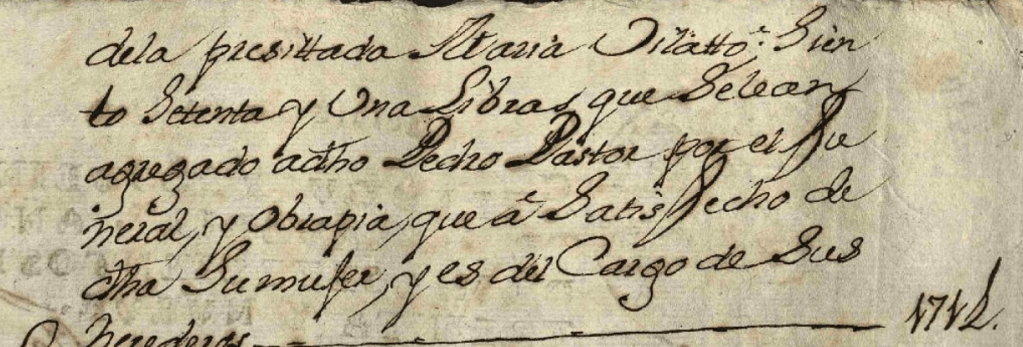 dela presittada Maria Vilatto.ª Sien
to Setenta y Una Libras, que Selean
agregado adho Pedro Pastor por el fu
neral, y Obrapia, que â Satisfecho de
dha Sumujer, y es del Cargo de Sus
herederos 171 L.